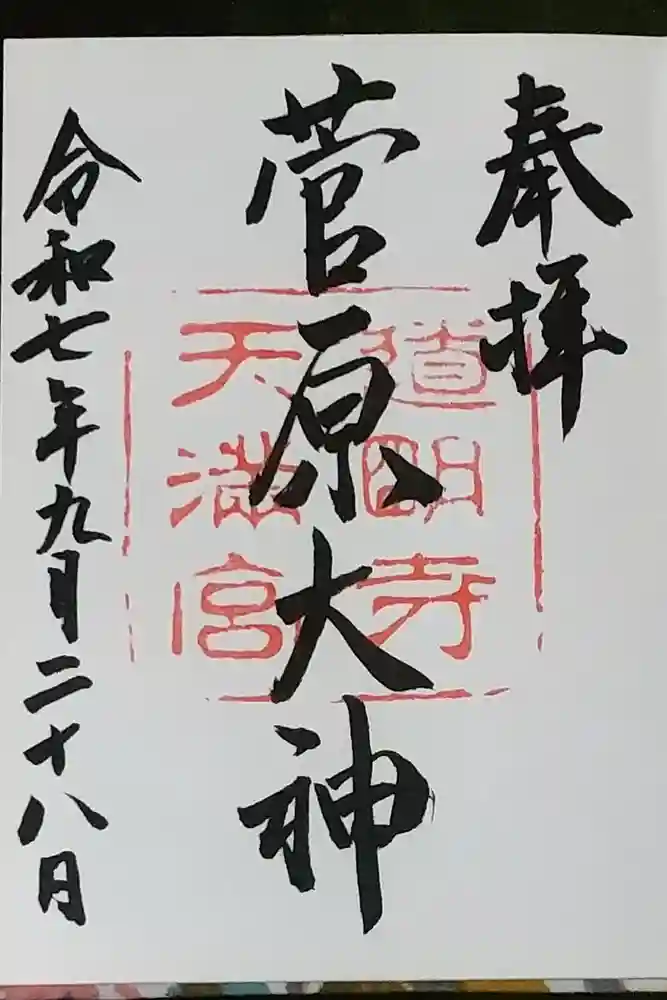 奉拝
菅原大神
道明寺
天満宮
令和七年九月二十八日